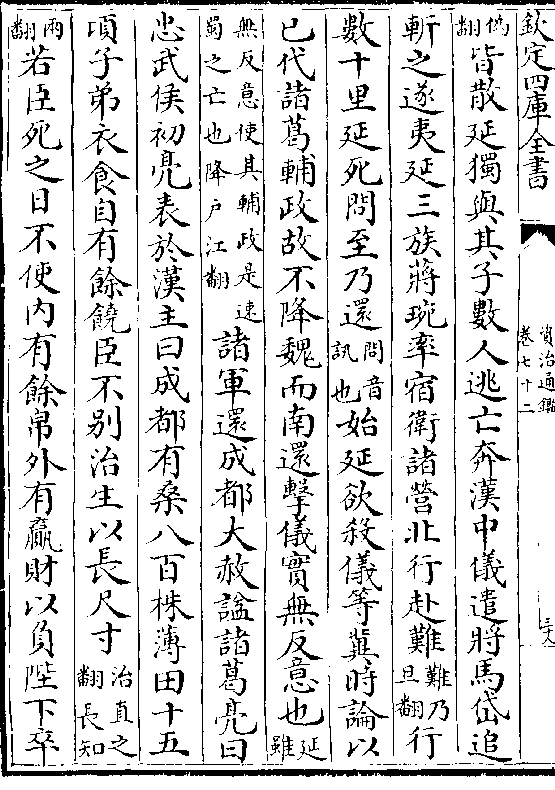 欽定四庫全書
資治通鑑
卷七十二
偽翻皆散延獨與其子數人逃亡奔漢中儀遣將馬岱追
斬之遂夷延三族蔣琬率宿衛諸營北行赴難難乃旦翻行
數十里延死問至乃還問音訊也始延欲殺儀等冀時論以
已代諸葛輔政故不降魏而南還擊儀實無反意也延雖
無反意使其輔政是速蜀之亡也降戶江翻諸軍還成都大赦諡諸葛亮曰
忠武侯初亮表於漢主曰成都有桑八百株薄田十五
頃子弟衣食自有餘饒臣不别治生以長尺寸治直之翻長知
兩翻若臣死之日不使内有餘帛外有贏財以負陛下卒